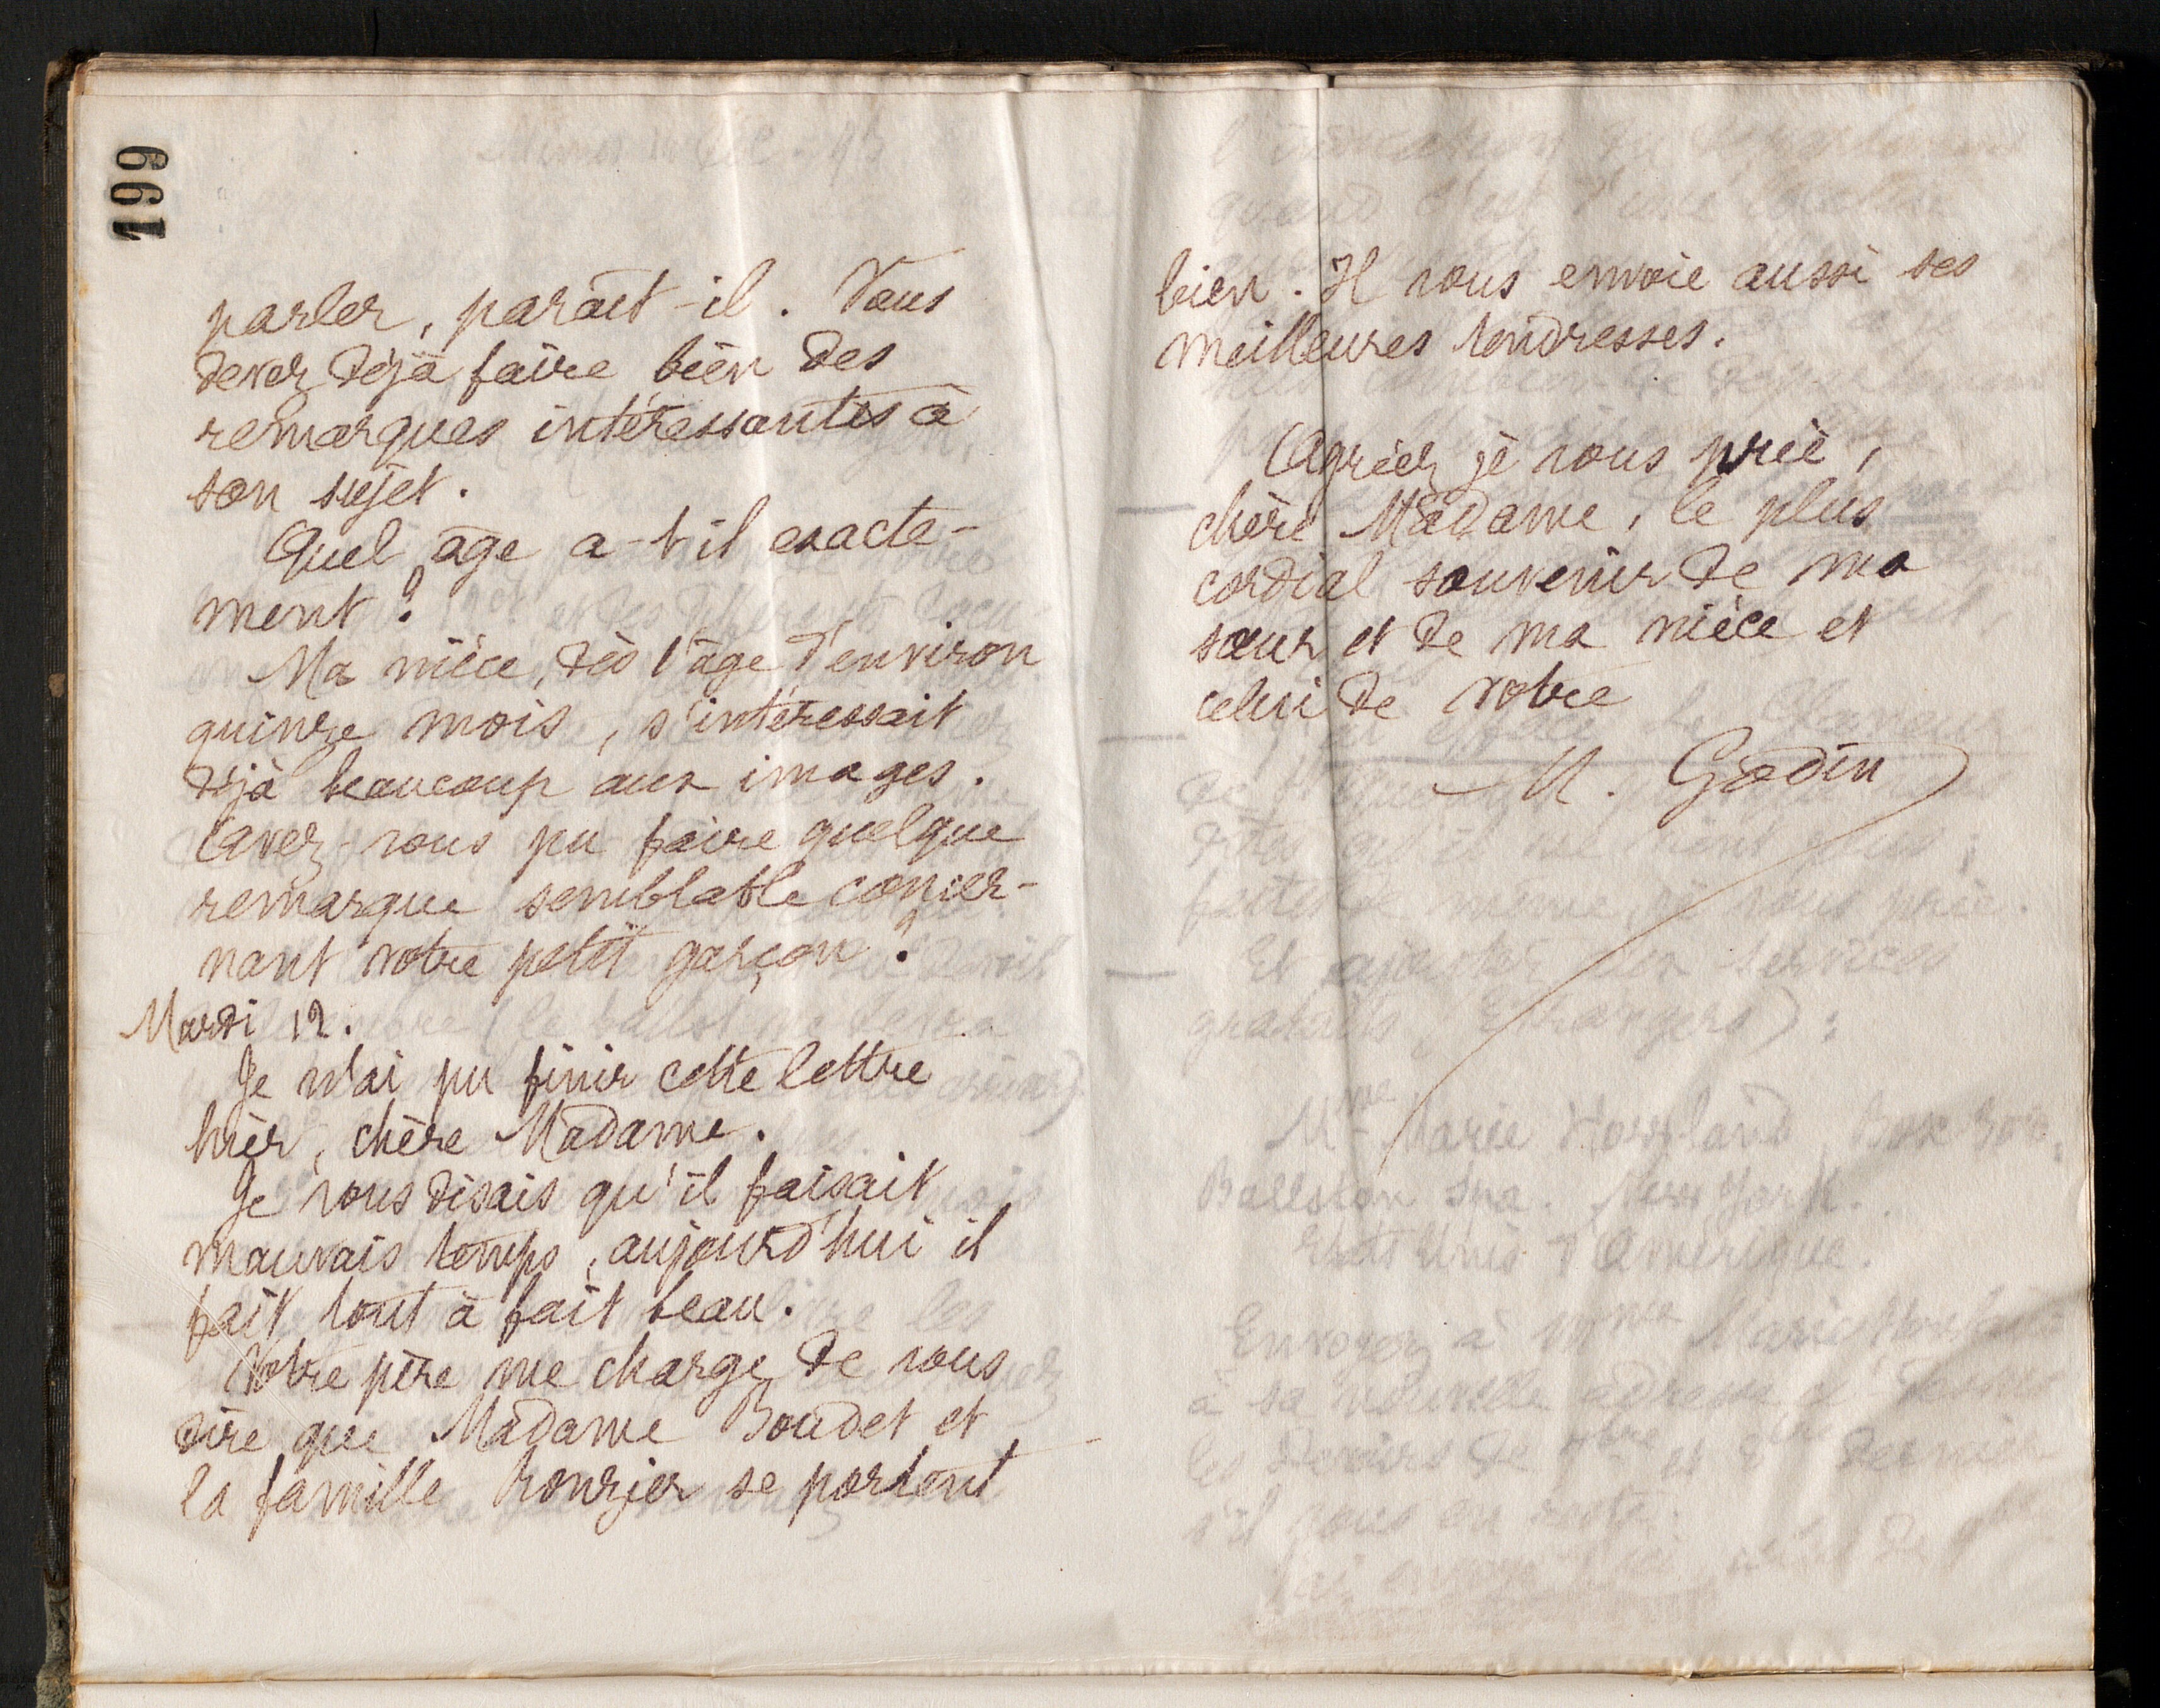 199
parler, paraît-il. Vous
devez déjà faire bien des
remarques intéressantes à
son sujet.
Quel âge a-t-il exacte-
ment ?
Ma nièce, dès l'âge d'environ
quinze mois, s'intéressait
déjà beaucoup aux images.
Avez-vous pu faire quelque
remarque semblable concer-
nant votre petit garçon ?
Mardi 12.
Je n'ai pu finir cette lettre
hier, chère Madame.
Je vous disais qu'il faisait
mauvais temps, aujourd'hui il
fait tout à fait beau.
Votre père me charge de vous
dire que Madame Boudet et
la famille se portent
bien. Il vous envoie aussi ses
meilleures tendresses.
Agréez je vous prie,
chère Madame, le plus
cordial souvenir de ma
sœur et de ma nièce et
celui de votre
M. Godin